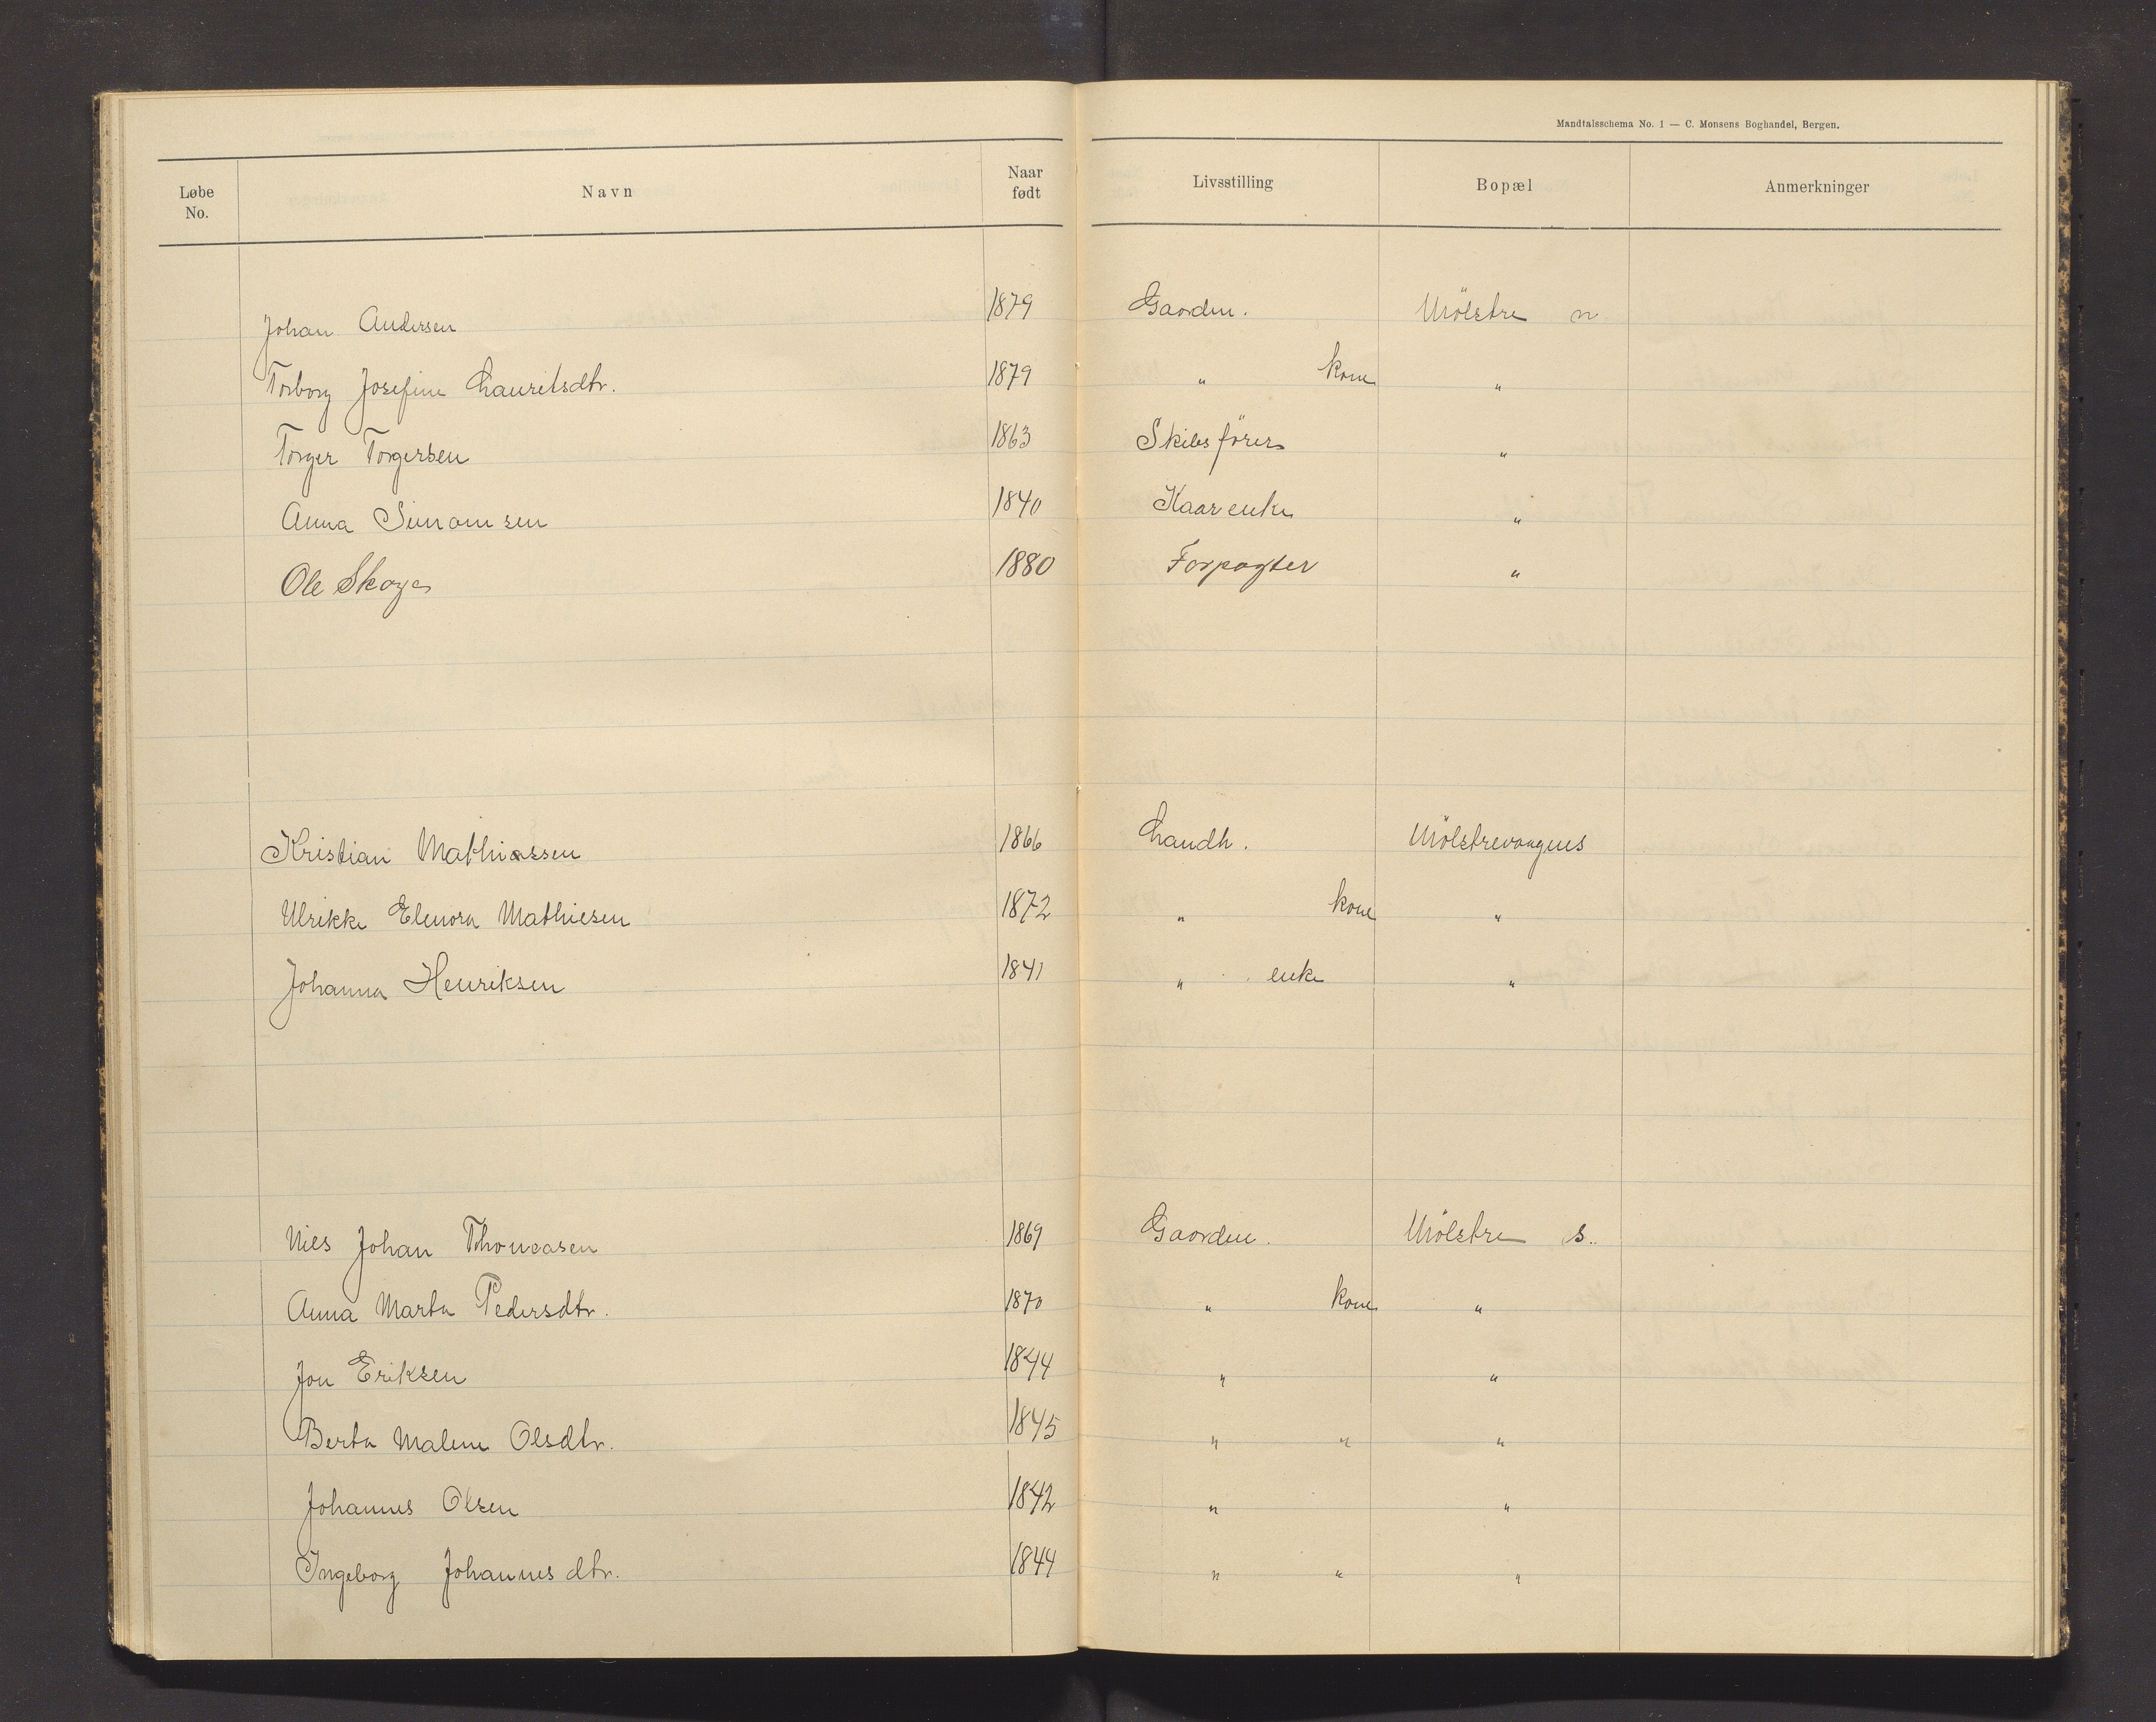 Mandtalsschema No. 1 — C. Monsens Boghandel, Bergen.
Løbe No. Navn Naar født Livsstilling Bopæl Anmerkninger
Johan Andersen 1879 Gaardm. Mölstre n
Torborg Josefine Lauritsdtr. 1879 " kone "
Torger Torgersen 1863 Skibsförer "
Anna Simonsen 1840 Kaarenke "
Ole Skoge 1880 Forpagter "
Kristian Mathiassen 1866 Landh. Mölstrevaagnes
Ulrikke Elenora Mathiesen 1872 " kone "
Johanna Henriksen 1841 " enke "
Nils Johan Thomasen 1869 Gaardm. Mölstre s.
Anna Marta Pedersdtr. 1870 " kone "
Jon Eriksen 1844 " "
Berta Malene Olsdtr. 1845 " " "
Johannes Olsen 1842 " "
Ingeborg Johannesdtr. 1844 " " "